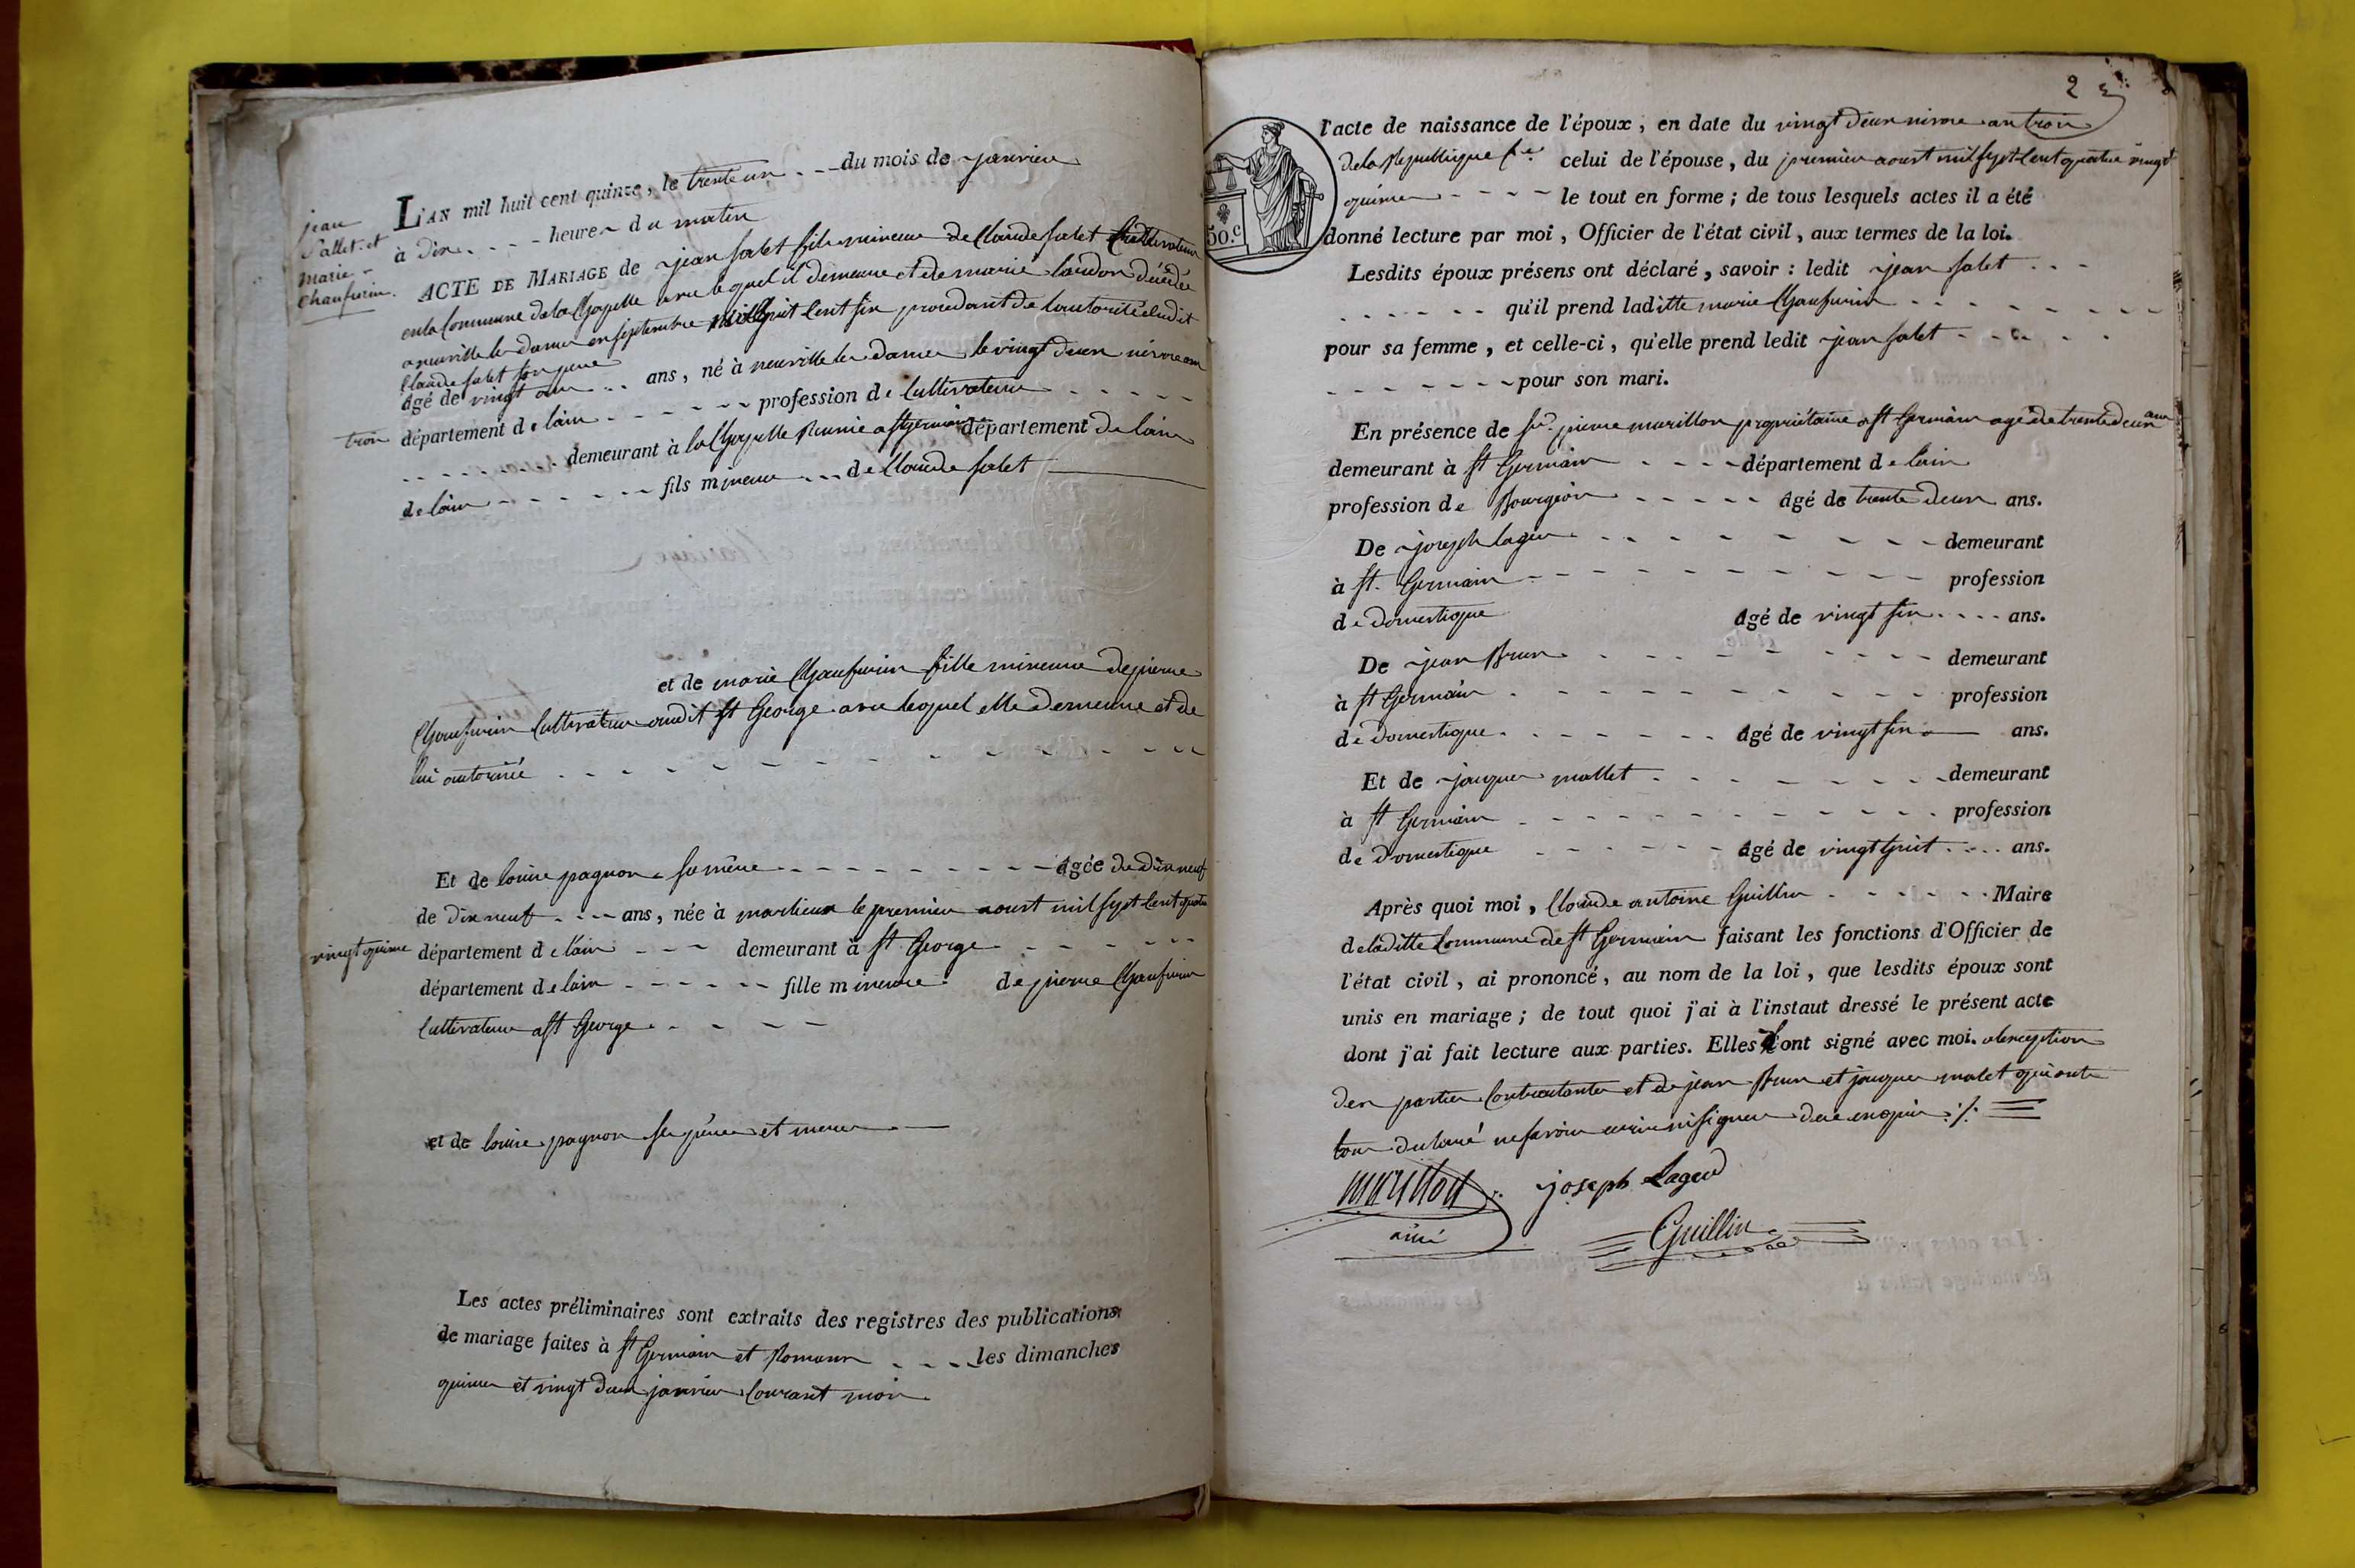 jean
Sallet et
marie
Chanfurin.
L'AN mil huit cent quinze, le trente un du mois de janvier
à dix heures du matin
ACTE DE MARIAGE de jean salet fils mineur de Claude salet Cultivateur
en la Commune de la Chapelle avec lequel il demeure et de marie laudon décédée
a neuville les dames en septembre mil huit Cent six procedant de l'autorité dudit
Claude salet son pere
âgé de vingt ans ans, né à neuville les dames le vingt deux nivose an
trois département de l'ain profession de Cultivateur
demeurant à la Chapelle Reunie a st germain département de l'ain
de l'ain fils mineur de Claude salet
et de marie Chanfurin fille mineure de pierre
Chanfurin Cultivateur audit st George avec lequel elle demeure et de
lui autorisée
Et de louise pagnon sa mère âgée de dix neuf
de dix neuf ans, née à marlieux le premier aoust mil sept Cent quatre
vingt quinze département de l'ain demeurant à st George
département de l'ain fille mineure de pierre Chanfurin
Cultivateur a st George
et de louise pagnon ses père et mere
Les actes préliminaires sont extraits des registres des publications
de mariage faites à st Germain et Romans les dimanches
quinze et vingt deux janvier Courant mois
2
50.c
l'acte de naissance de l'époux, en date du vingt deux nivose an trois
de la Republique celui de l'épouse, du premier aoust mil sept Cent quatre vingt
quinze le tout en forme ; de tous lesquels actes il a été
donné lecture par moi, Officier de l'état civil, aux termes de la loi.
Lesdits époux présens ont déclaré, savoir : ledit jean salet
qu'il prend laditte marie Chanfurin
pour sa femme, et celle-ci, qu'elle prend ledit jean salet
pour son mari.
En présence de sr. pierre murillon propriétaire a st Germain agé de trente deux ans
demeurant à st Germain département de l'ain
profession de Bourgeois âgé de trente deux ans.
De joseph lager demeurant
à st. Germain profession
de domestique âgé de vingt six ans.
De jean Brun demeurant
à st Germain profession
de domestique âgé de vingt six ans.
Et de jaques mallet demeurant
à st Germain profession
de domestique âgé de vingt huit ans.
Après quoi moi, Claude antoine Guillin Maire
de laditte Commune de st Germain faisant les fonctions d'Officier de
l'état civil, ai prononcé, au nom de la loi, que lesdits époux sont
unis en mariage ; de tout quoi j'ai à l'instaut dressé le présent acte
dont j'ai fait lecture aux parties. Elles l'ont signé avec moi. a l'exception
des parties Contractantes et de jean Brun et jaques malet qui ont
tous declaré ne savoir ecrire ni signer de ce enquis ./.
murillon joseph Lager
ainé
Guillin